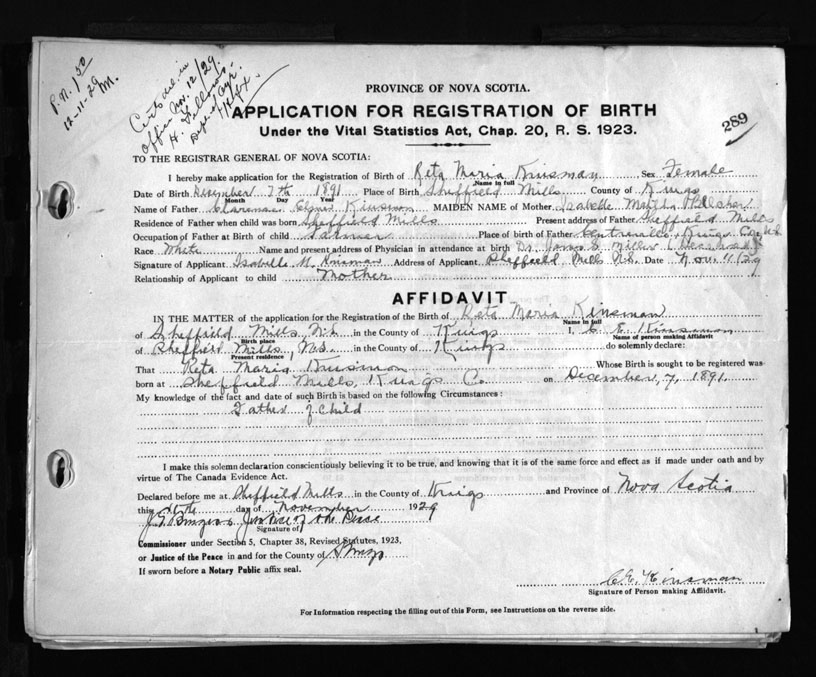 P.N. 150
12-11-29
M.
office Nov. 12/29.
PROVINCE OF NOVA SCOTIA.
APPLICATION FOR REGISTRATION OF BIRTH
289
Under the Vital Statistics Act, Chap. 20, R. S. 1923.
TO THE REGISTRAR GENERAL OF NOVA SCOTIA:
I hereby make application for the Registration of Birth of Reta Maria Kinsman Sex Female
Name in full
Date of Birth December 7th 1891 Place of Birth Sheffield Mills County of Kings
Month Day Year
Name of Father Clarence Kinsman MAIDEN NAME of Mother Isabelle
Residence of Father when child was born Sheffield Mills Present address of Father Sheffield Mills
Occupation of Father at Birth of child Farmer Place of birth of Father Centreville, Kings
Race White Name and present address of Physician in attendance at birth Dr. James Miller (Deceased)
Signature of Applicant Isabelle M. Kinsman Address of Applicant Sheffield Mills N.S. Date Nov. 11/29
Relationship of Applicant to child Mother
AFFIDAVIT
IN THE MATTER of the application for the Registration of the Birth of Reta Maria Kinsman
Name in full
of Sheffield Mills, N.S. in the County of Kings I, C. E. Kinsman
Birth place Name of person making Affidavit
of Sheffield Mills, N.S. in the County of Kings do solemnly declare:
Present residence
That Reta Maria Kinsman Whose Birth is sought to be registered was
born at Sheffield Mills, Kings Co. on December, 7, 1891.
My knowledge of the fact and date of such Birth is based on the following Circumstances:
Father of Child
I make this solemn declaration conscientiously believing it to be true, and knowing that it is of the same force and effect as if made under oath and by
virtue of The Canada Evidence Act.
Declared before me at Sheffield Mills in the County of Kings and Province of Nova Scotia
this day of November 1929
Justice of the Peace
Signature of
Commissioner under Section 5, Chapter 38, Revised Statutes, 1923,
or Justice of the Peace in and for the County of Kings
If sworn before a Notary Public affix seal.
C.E. Kinsman
Signature of Person making Affidavit.
For Information respecting the filling out of this Form, see Instructions on the reverse side.